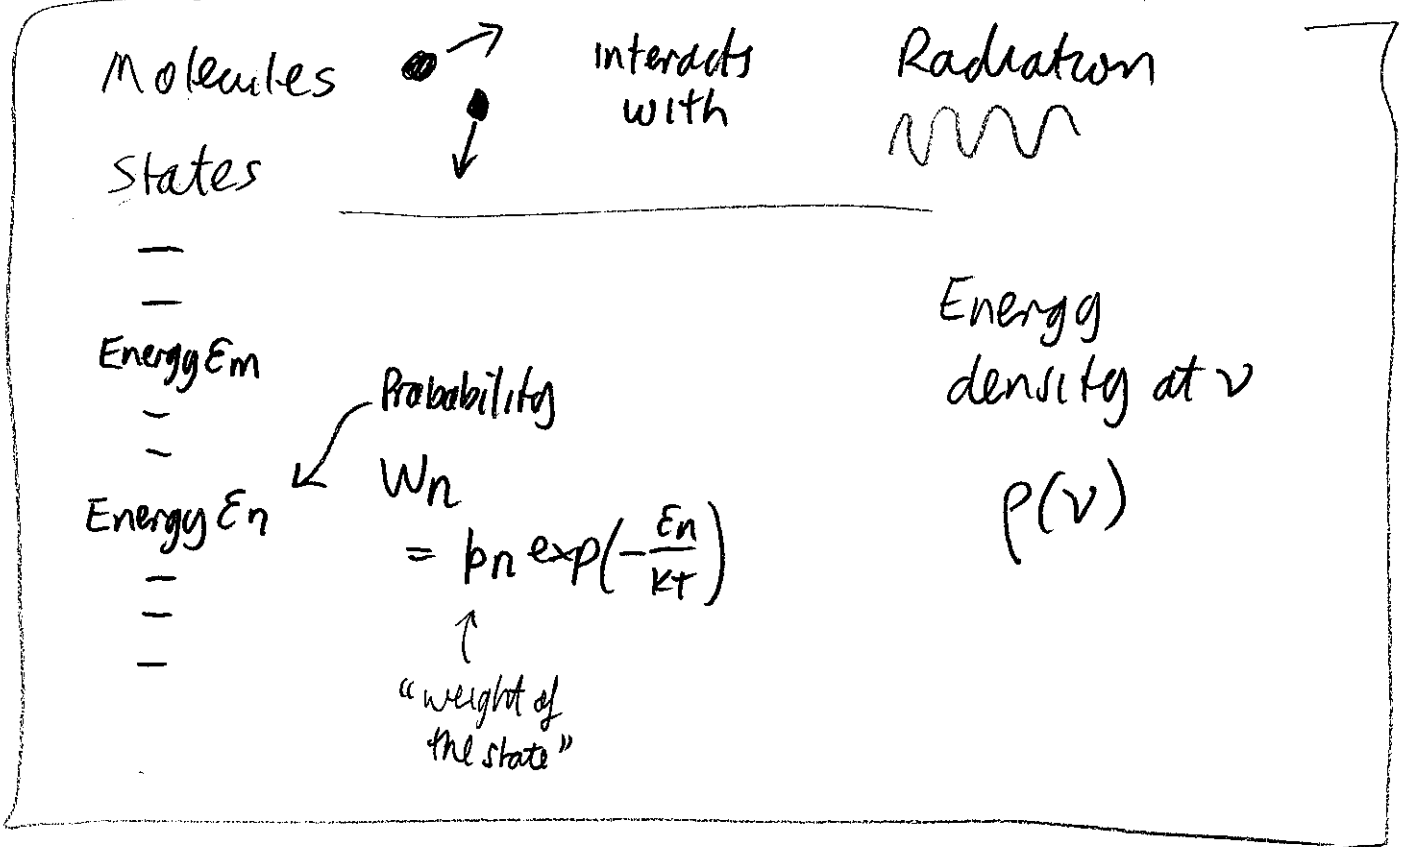 Molecules
interacts
with
Radiation
States
Energy εm
Energy εn
Probability
Wn
= pn exp(-εn/kT)
"weight of
the state"
Energy
density at ν
ρ(ν)